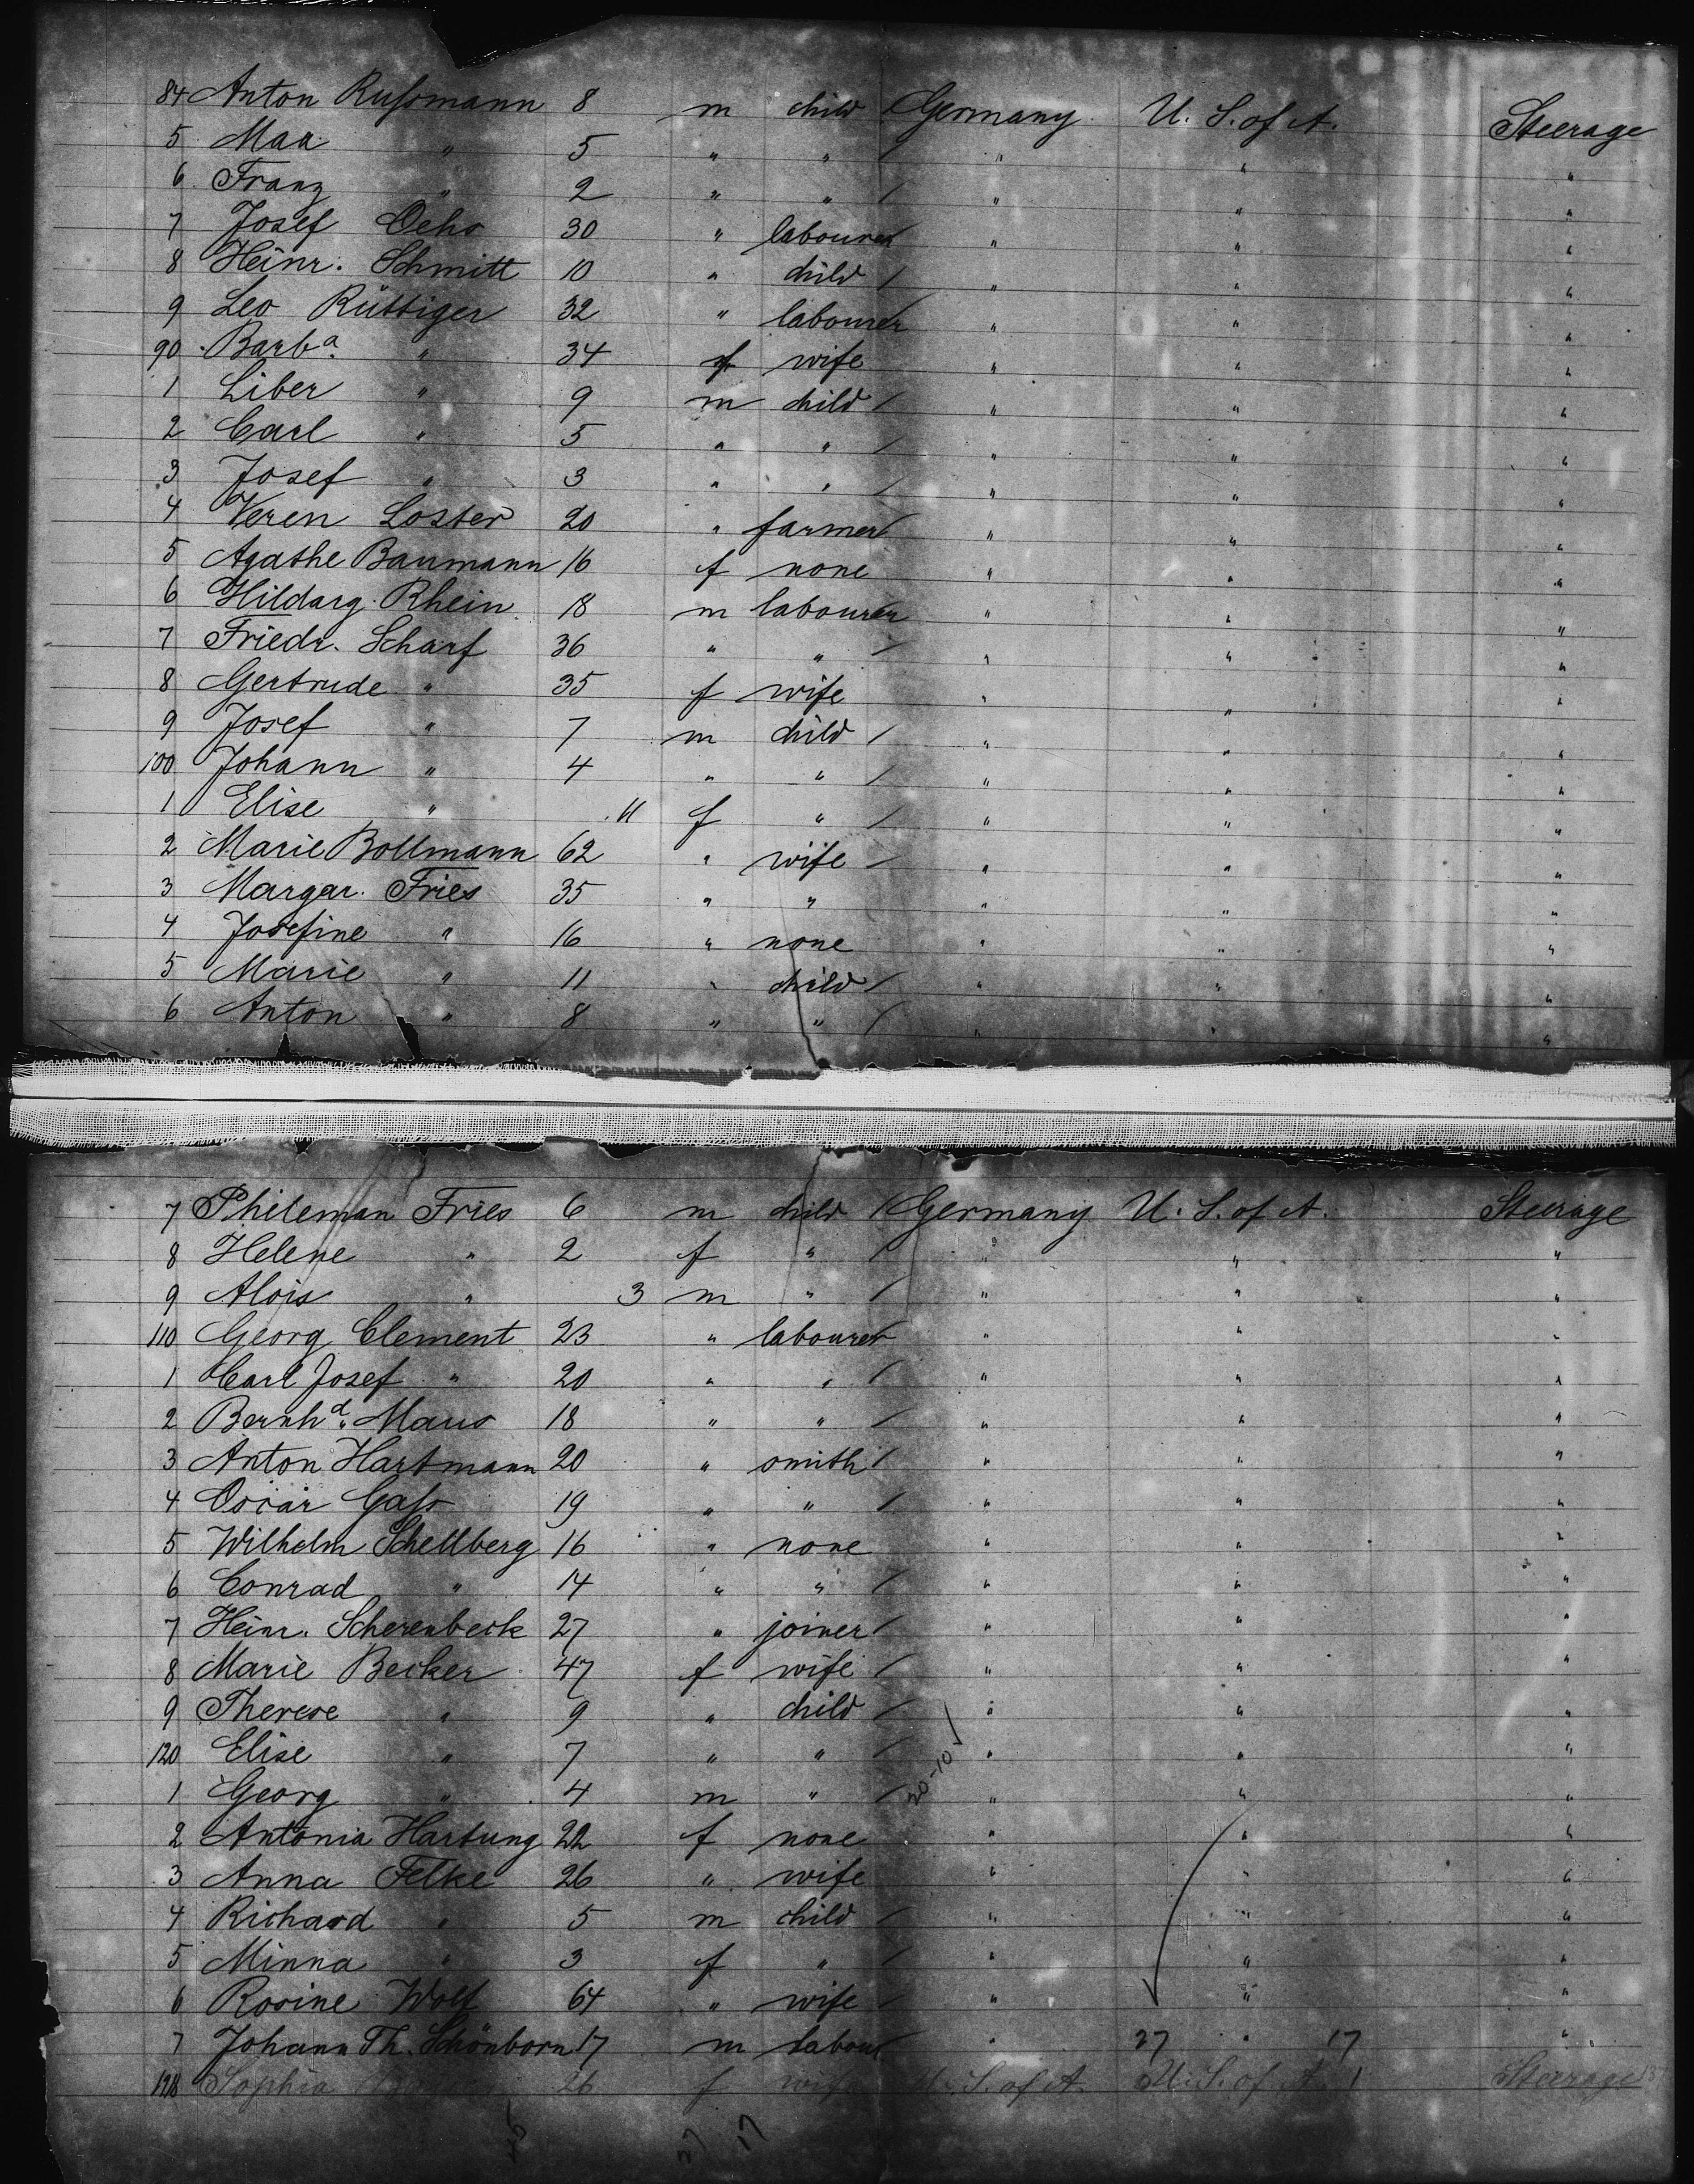 84 Anton Rußmann 8 m child / Germany U. S. of A. Steerage
5 Max " 5 " " / " " "
6 Franz " 2 " " / " " "
7 Josef Ochs 30 " labourer " " "
8 Heinr. Schmitt 10 " child / " " "
9 Leo Rüttiger 32 " labourer " " "
90 Barba. " 34 f wife " " "
1 Liber " 9 m child / " " "
2 Carl " 5 " " / " " "
3 Josef " 3 " " / " " "
4 Veren Loster 20 " farmer / " " "
5 Agathe Baumann 16 f none " " "
6 Hildarg. Rhein 18 m labourer " " "
7 Friedr. Scharf 36 " " / " " "
8 Gertrude " 35 f wife " " "
9 Josef " 7 m child / " " "
100 Johann " 4 " " / " " "
1 Elise " 11 f " / " " "
2 Marie Bollmann 62 " wife / " " "
3 Margar. Fries 35 " " " " "
4 Josefine " 16 " none " " "
5 Marie " 11 " child / " " "
6 Anton " 8 " " / " " "
7 Phileman Fries 6 m child / Germany U. S. of A. Steerage
8 Helene " 2 f " / " " "
9 Alois " 3 m " / " " "
110 Georg Clement 23 " labourer " " "
1 Carl Josef " 20 " " / " " "
2 Bernhd. Maus 18 " " / " " "
3 Anton Hartmann 20 " smith / " " "
4 Oscar Gaß 19 " " / " " "
5 Wilhelm Schellberg 16 " none " " "
6 Conrad " 14 " " / " " "
7 Heinr. Scherenbeck 27 " joiner / " " "
8 Marie Becker 47 f wife / " " "
9 Therese " 9 " child / " " "
120 Elise " 7 " " / " " "
1 Georg " 4 m " / 20-10 " " "
2 Antonia Hartung 22 f none " " "
3 Anna Felke 26 " wife " " "
4 Richard " 5 m child / " " "
5 Minna " 3 f " / " " "
6 Rosine Wolf 64 " wife / " " "
7 Johann Th. Schönborn 17 m labour " 27 " 17 "
128 Sophia 26 f wife U. S. of A. U. S. of A. 1 Steerage
27 17